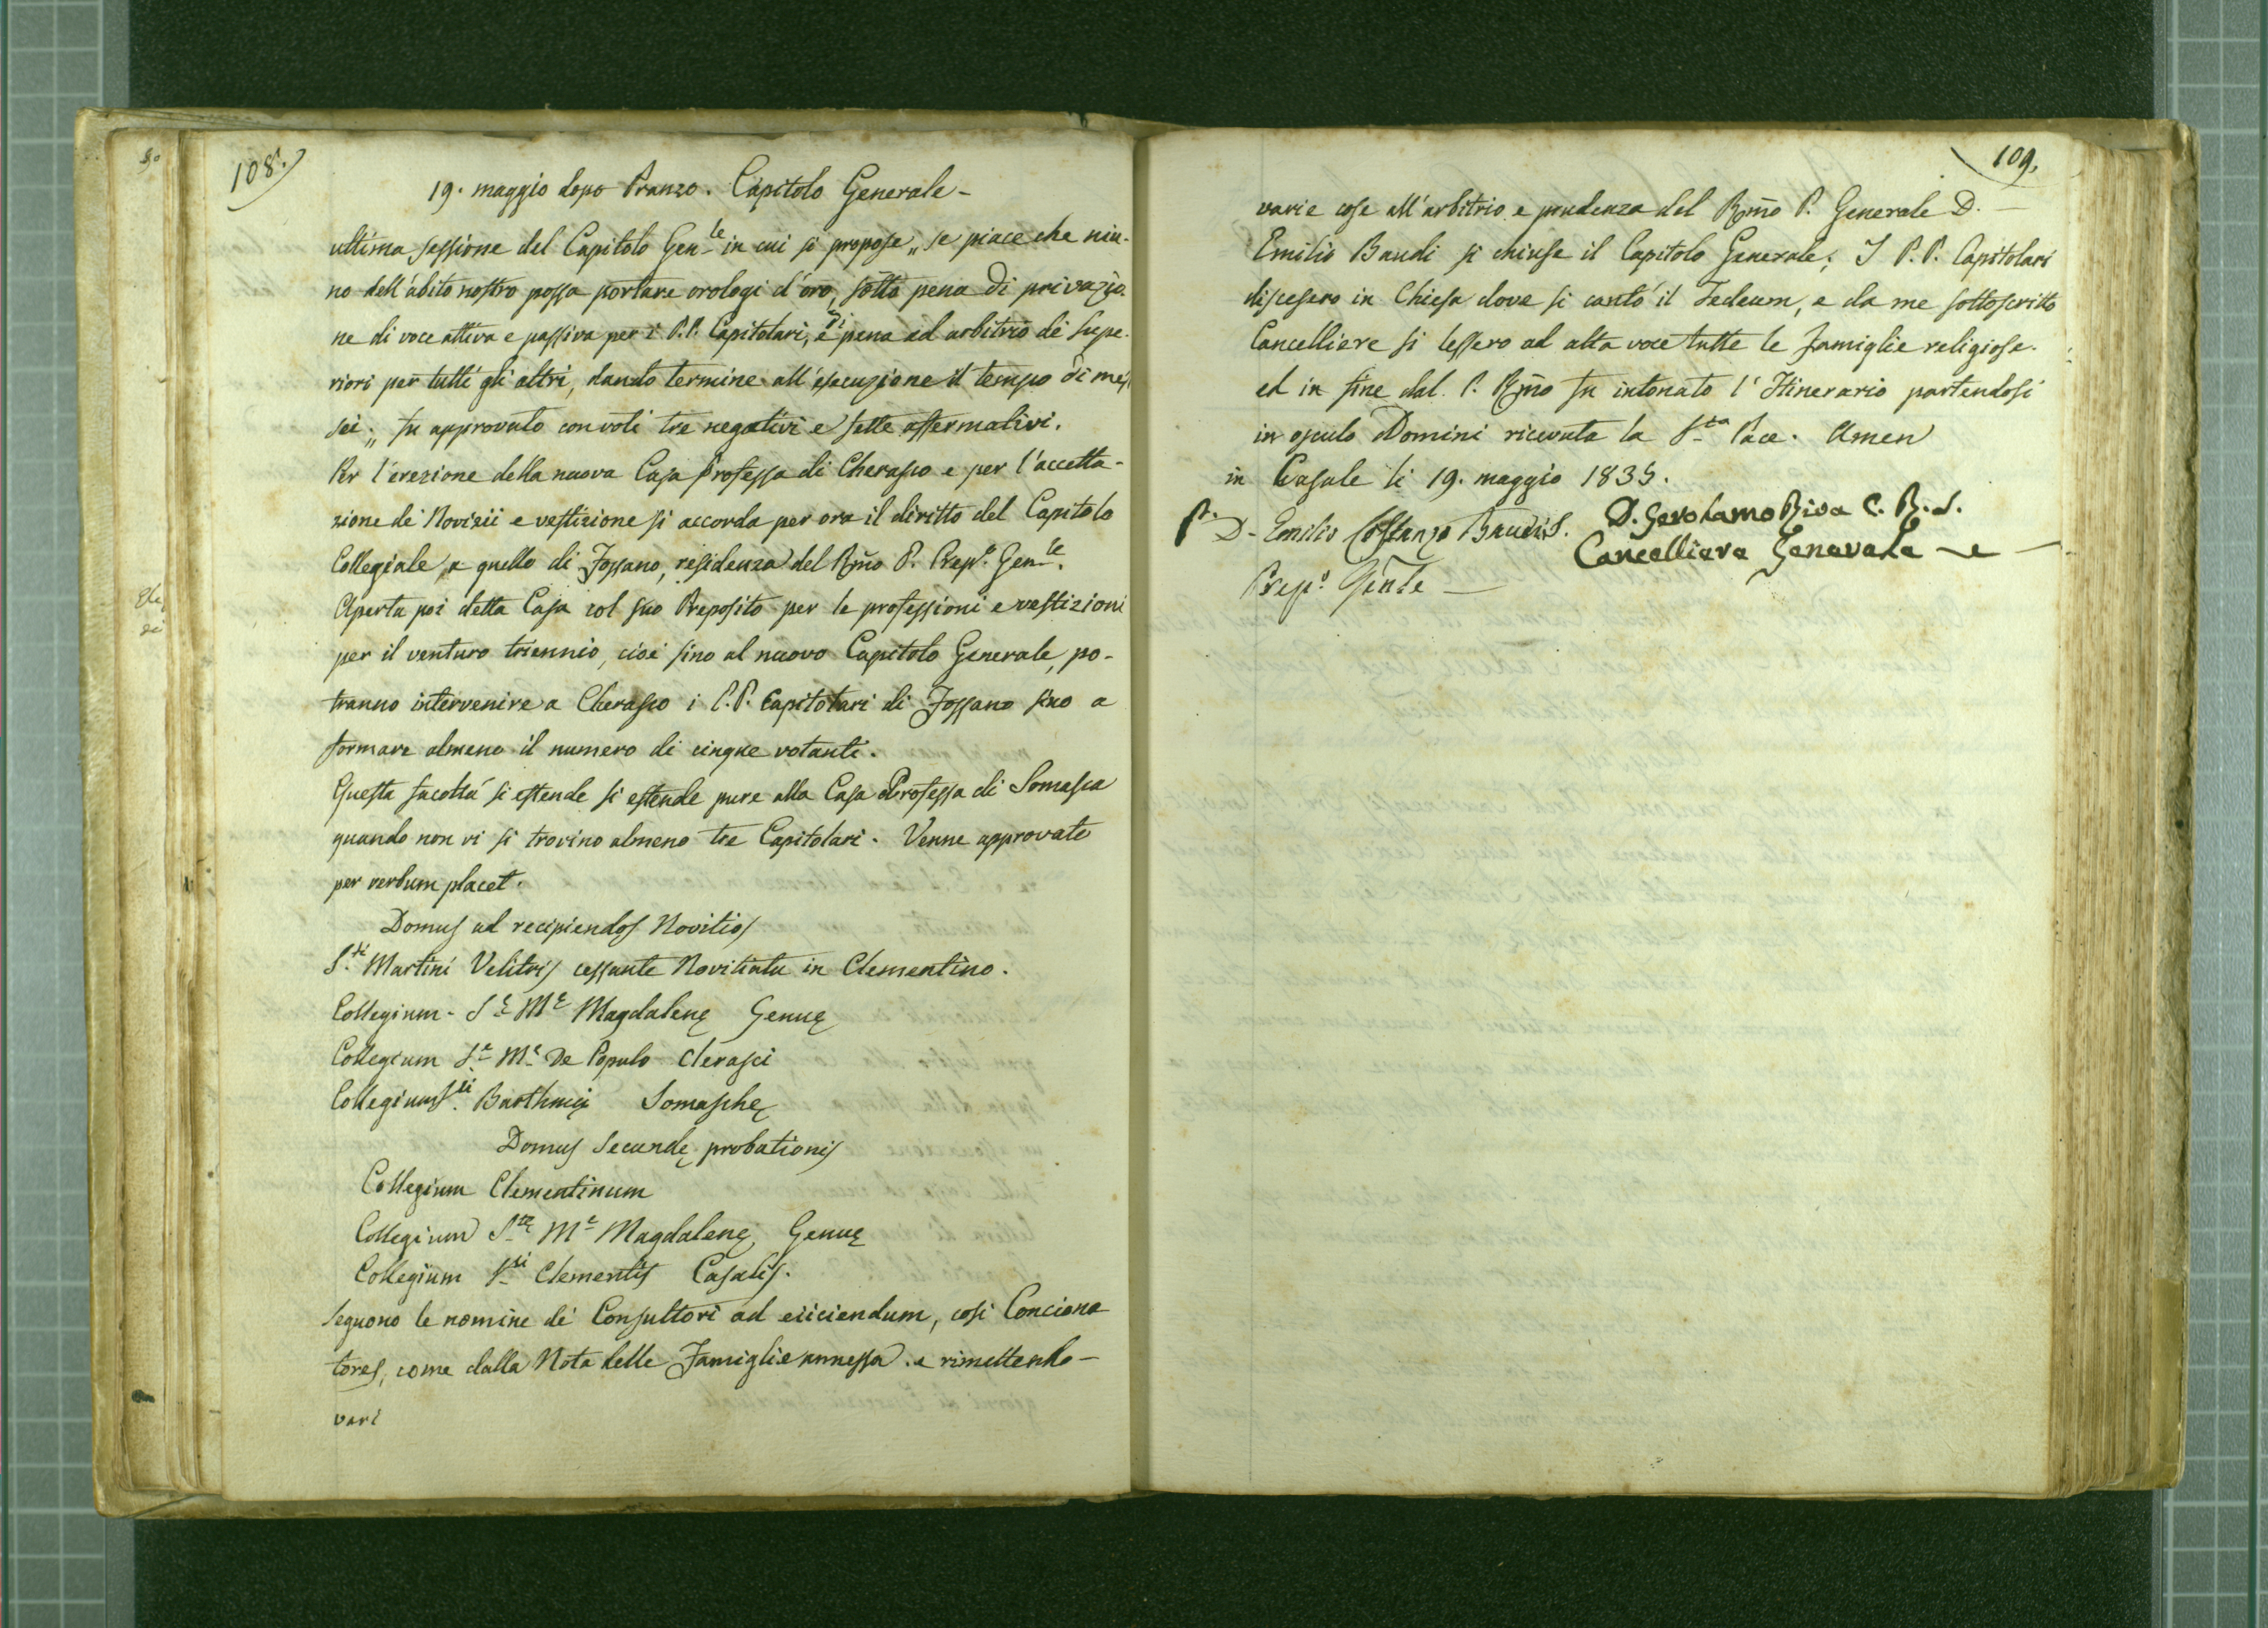 108.
19. maggio dopo Pranzo. Capitolo Generale -
ultima sessione del Capitolo Gen.le in cui si propose „ se piace che niu-
no dell'abito nostro possa portare orologi d'oro, sotto pena di privazio-
ne di voce attiva e passiva per i P.P. Capitolari, e di pena ad arbitrio de' Supe-
riori per tutti gli altri, dando termine all'esecuzione il tempo di mesi
sei „ fu approvato con voti tre negativi e sette affermativi.
Per l'erezione della nuova Casa Professa di Cherasco e per l'accetta-
zione de' Novizii e vestizione si accorda per ora il diritto del Capitolo
Collegiale a quello di Fossano, residenza del Rmo P. Prep.o Gen.le.
Aperta poi detta Casa col suo Preposito per le professioni e vestizioni
per il venturo triennio, cioè sino al nuovo Capitolo Generale, po-
tranno intervenire a Cherasco i P.P. Capitolari di Fossano sino a
formare almeno il numero di cinque votanti.
Questa facoltà si estende si estende pure alla Casa Professa di Somasca
quando non vi si trovino almeno tre Capitolari. Venne approvato
per verbum placet.
Domus ad recipiendos Novitios
S.ti Martini Velitris cessante Novitiatu in Clementino.
Collegium - S.ę M.ę Magdalenę Genuę
Collegium S.ę M.ę De Populo Clerasci
Collegium S.ti Barthmęi Somaschę
Domus Secundę probationis
Collegium Clementinum
Collegium S.tę M.ę Magdalenę Genuę
Collegium S.ti Clementis Casalis.
Seguono le nomine de' Consultori ad eiiciendum, così Conciona
tores, come dalla Nota delle Famiglie annessa. e rimettendo -
vari
109.
varie cose all'arbitrio e prudenza del Rmo P. Generale D. -
Emilio Baudi si chiuse il Capitolo Generale; I P.P. Capitolari
discesero in Chiesa dove si cantò il Tedeum, e da me sottoscritto
Cancelliere si lessero ad alta voce tutte le famiglie religiose.
ed in fine dal P. Rmo fu intonato l'Itinerario partendosi
in osculo Domini ricevuta la S.ta Pace. Amen
in Casale li 19. maggio 1835.
D. Emilio Costanzo Baudi
Prep.o Gen̄le
D. Gerolamo Riva C. R. S.
Cancelliere Generale